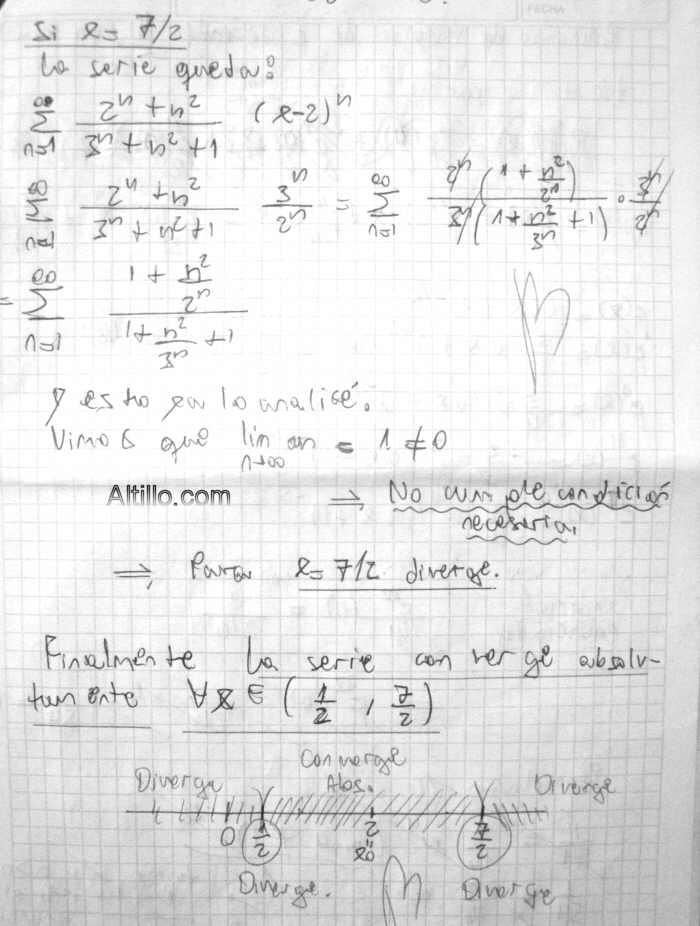 FECHA
Si x = 7/2
La serie queda:
∞ Σ n=1 (2ⁿ + n²)/(3ⁿ + n² + 1) (x-2)ⁿ
∞ Σ n=1 (2ⁿ + n²)/(3ⁿ + n² + 1) 3ⁿ/2ⁿ = ∞ Σ n=1 2ⁿ(1 + n²/2ⁿ)/3ⁿ(1 + n²/3ⁿ + 1) · 3ⁿ/2ⁿ
= ∞ Σ n=1 (1 + n²/2ⁿ)/(1 + n²/3ⁿ + 1)
y esto ya lo analicé.
Vimos que lim n→∞ an = 1 ≠ 0
Altillo.com
⇒ No cumple condición
necesaria.
⇒ Para x = 7/2 diverge.
Finalmente la serie converge absolu-
tamente ∀x ∈ (1/2, 7/2)
Converge
Diverge Abs. Diverge
0 1/2 2 7/2
x0
Diverge. Diverge